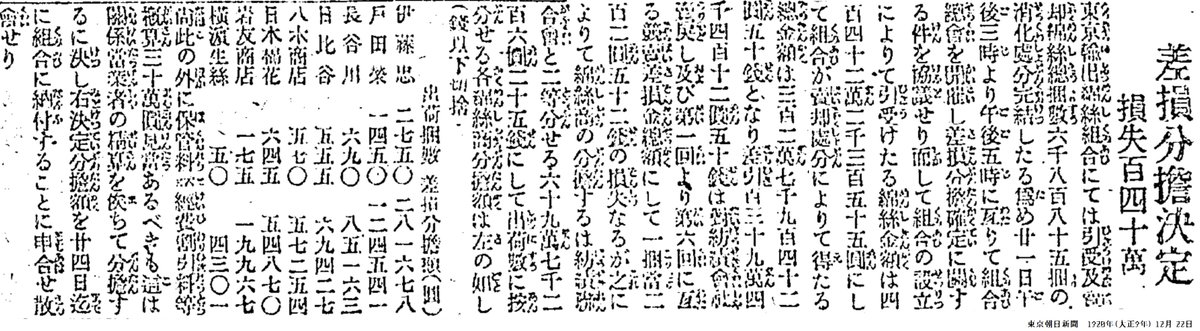 差損分擔決定
損失百四十萬
東京輸出綿絲組合にては引受及賣
却綿絲總梱數六千八百八十五梱の
消化處分完結したる爲め廿一日午
後三時より午後五時に亙りて組合
總會を開催し差損分擔確定に關す
る件を協議せり而して組合の設立
によりて引受けたる綿絲金額は四
百四十二萬二千三百五十五圓にし
て組合が賣却處分によりて得たる
總金額は三百二萬七千九百四十二
圓五十錢となり差引百三十九萬四
千四百十二圓五十錢は對紡績會社
賣戻し及び第一回より第六回に亙
る競賣差損金總額にして一梱當二
百二圓五十二錢の損失なるが之に
よりて綿絲商の分擔するは紡績聯
合會と二等分せる六十九萬七千二
百六圓二十五錢にして出荷數に按
分せる各綿絲商分擔額は左の如し
(錢以下切捨)
出荷梱數 差損分擔額(圓)
伊藤忠 二七五〇 二八一六七八
戸田榮 一四五〇 一二四五四一
長谷川 六九〇 八五一六三
日比谷 五五五 六九四二七
八木商店 五七〇 五七二五四
日本綿花 六四五 五四八七〇
岩友商店 一七五 一九九六七
横濱生絲 五〇 四三〇一
尚此の外に保管料 總費割引料等
概算三十萬圓見當あるべきも這は
關係當業者の精算を俟ちて分擔す
るに決し右決定分擔額を廿四日迄
に組合に納付することに申合せ散
會せり
東京朝日新聞 1920年(大正9年) 12月 22日